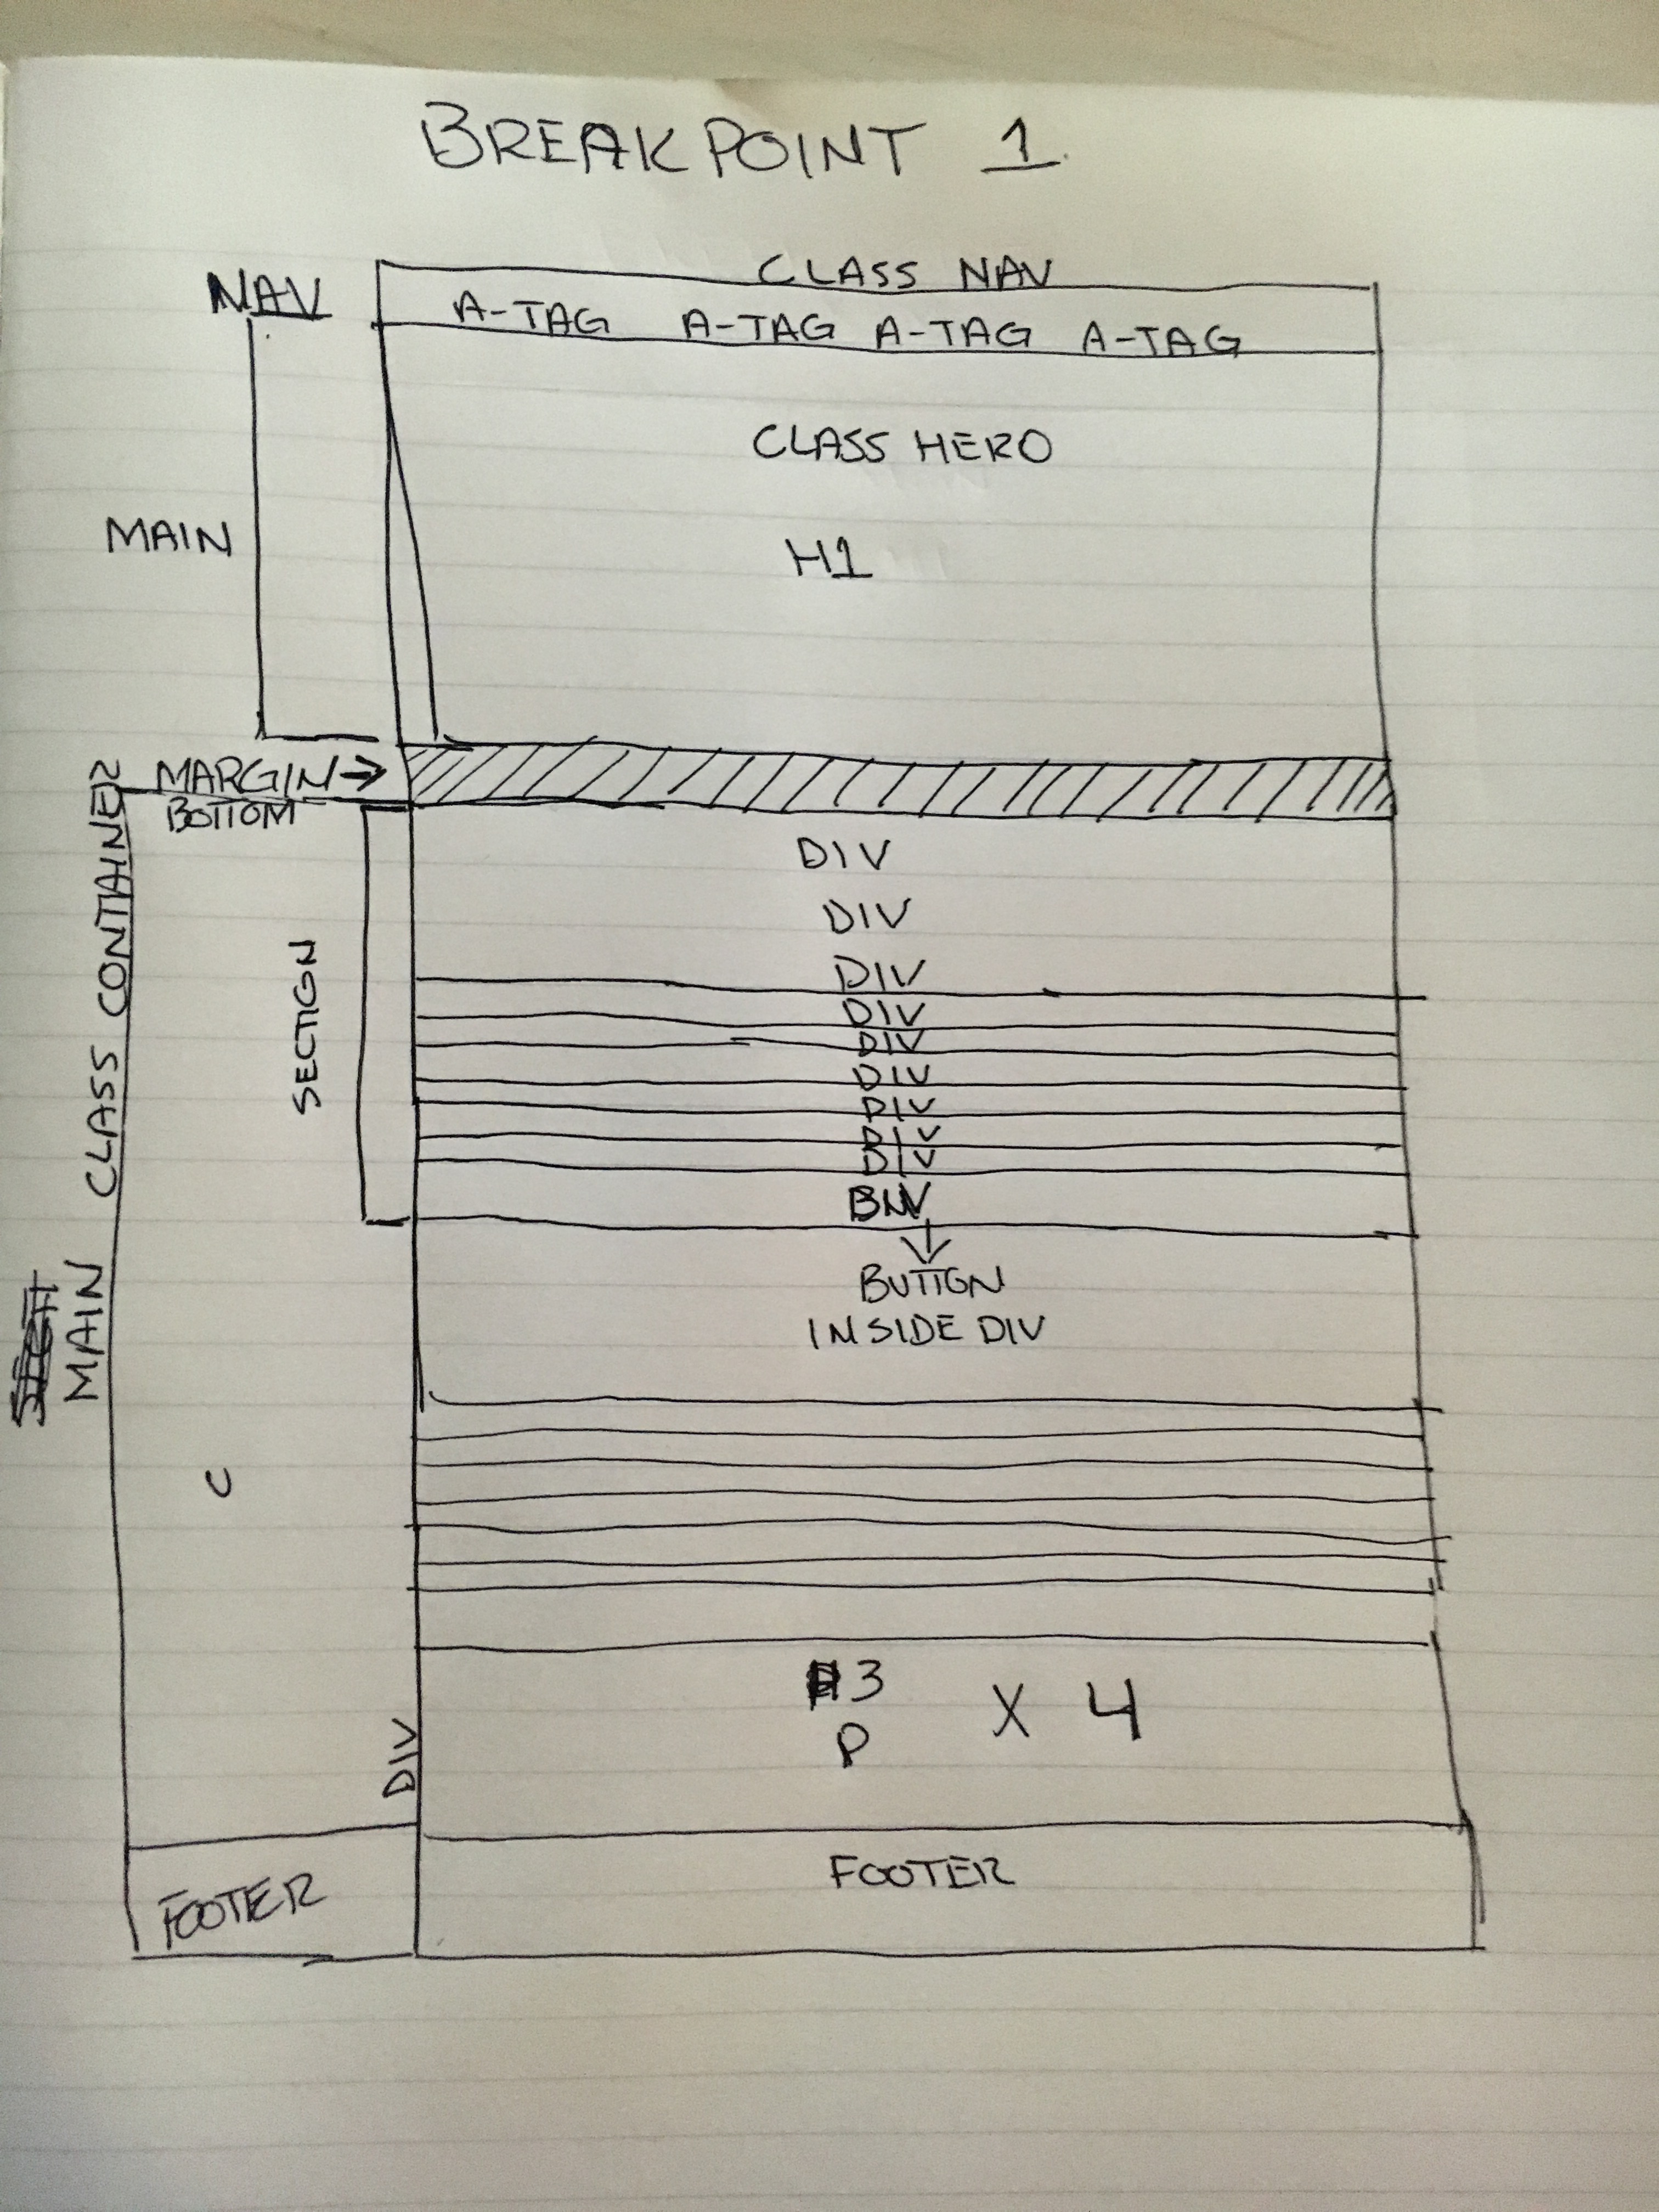 BREAKPOINT 1
NAV
CLASS NAV
A-TAG A-TAG A-TAG A-TAG
CLASS HERO
MAIN
H1
MARGIN →
BOTTOM
CLASS CONTAINER
MAIN
SECTION
DIV
DIV
DIV
DIV
DIV
DIV
DIV
DIV
DIV
BUTTON
INSIDE DIV
C
3
P
X 4
DIV
FOOTER
FOOTER